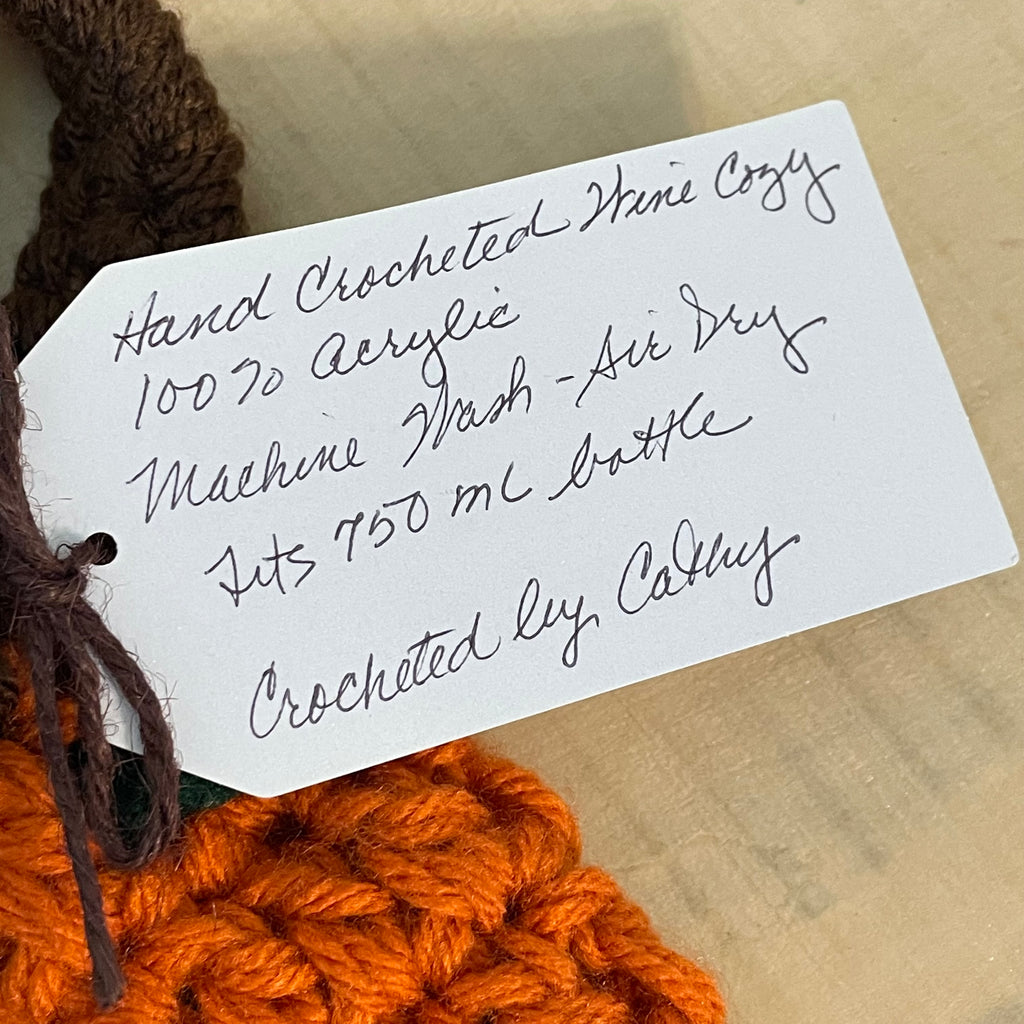 Hand Crocheted Wine Cozy
100% Acrylic
Machine Wash - Air Dry
Fits 750 mL bottle
Crocheted by Cathy